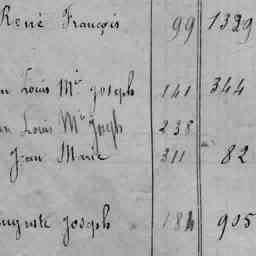 René François 99 1329
n Louis Mie Joseph 141 344
n Louis Mie Joseph 238
Jean Marie 311 82
uguste Joseph 184 905